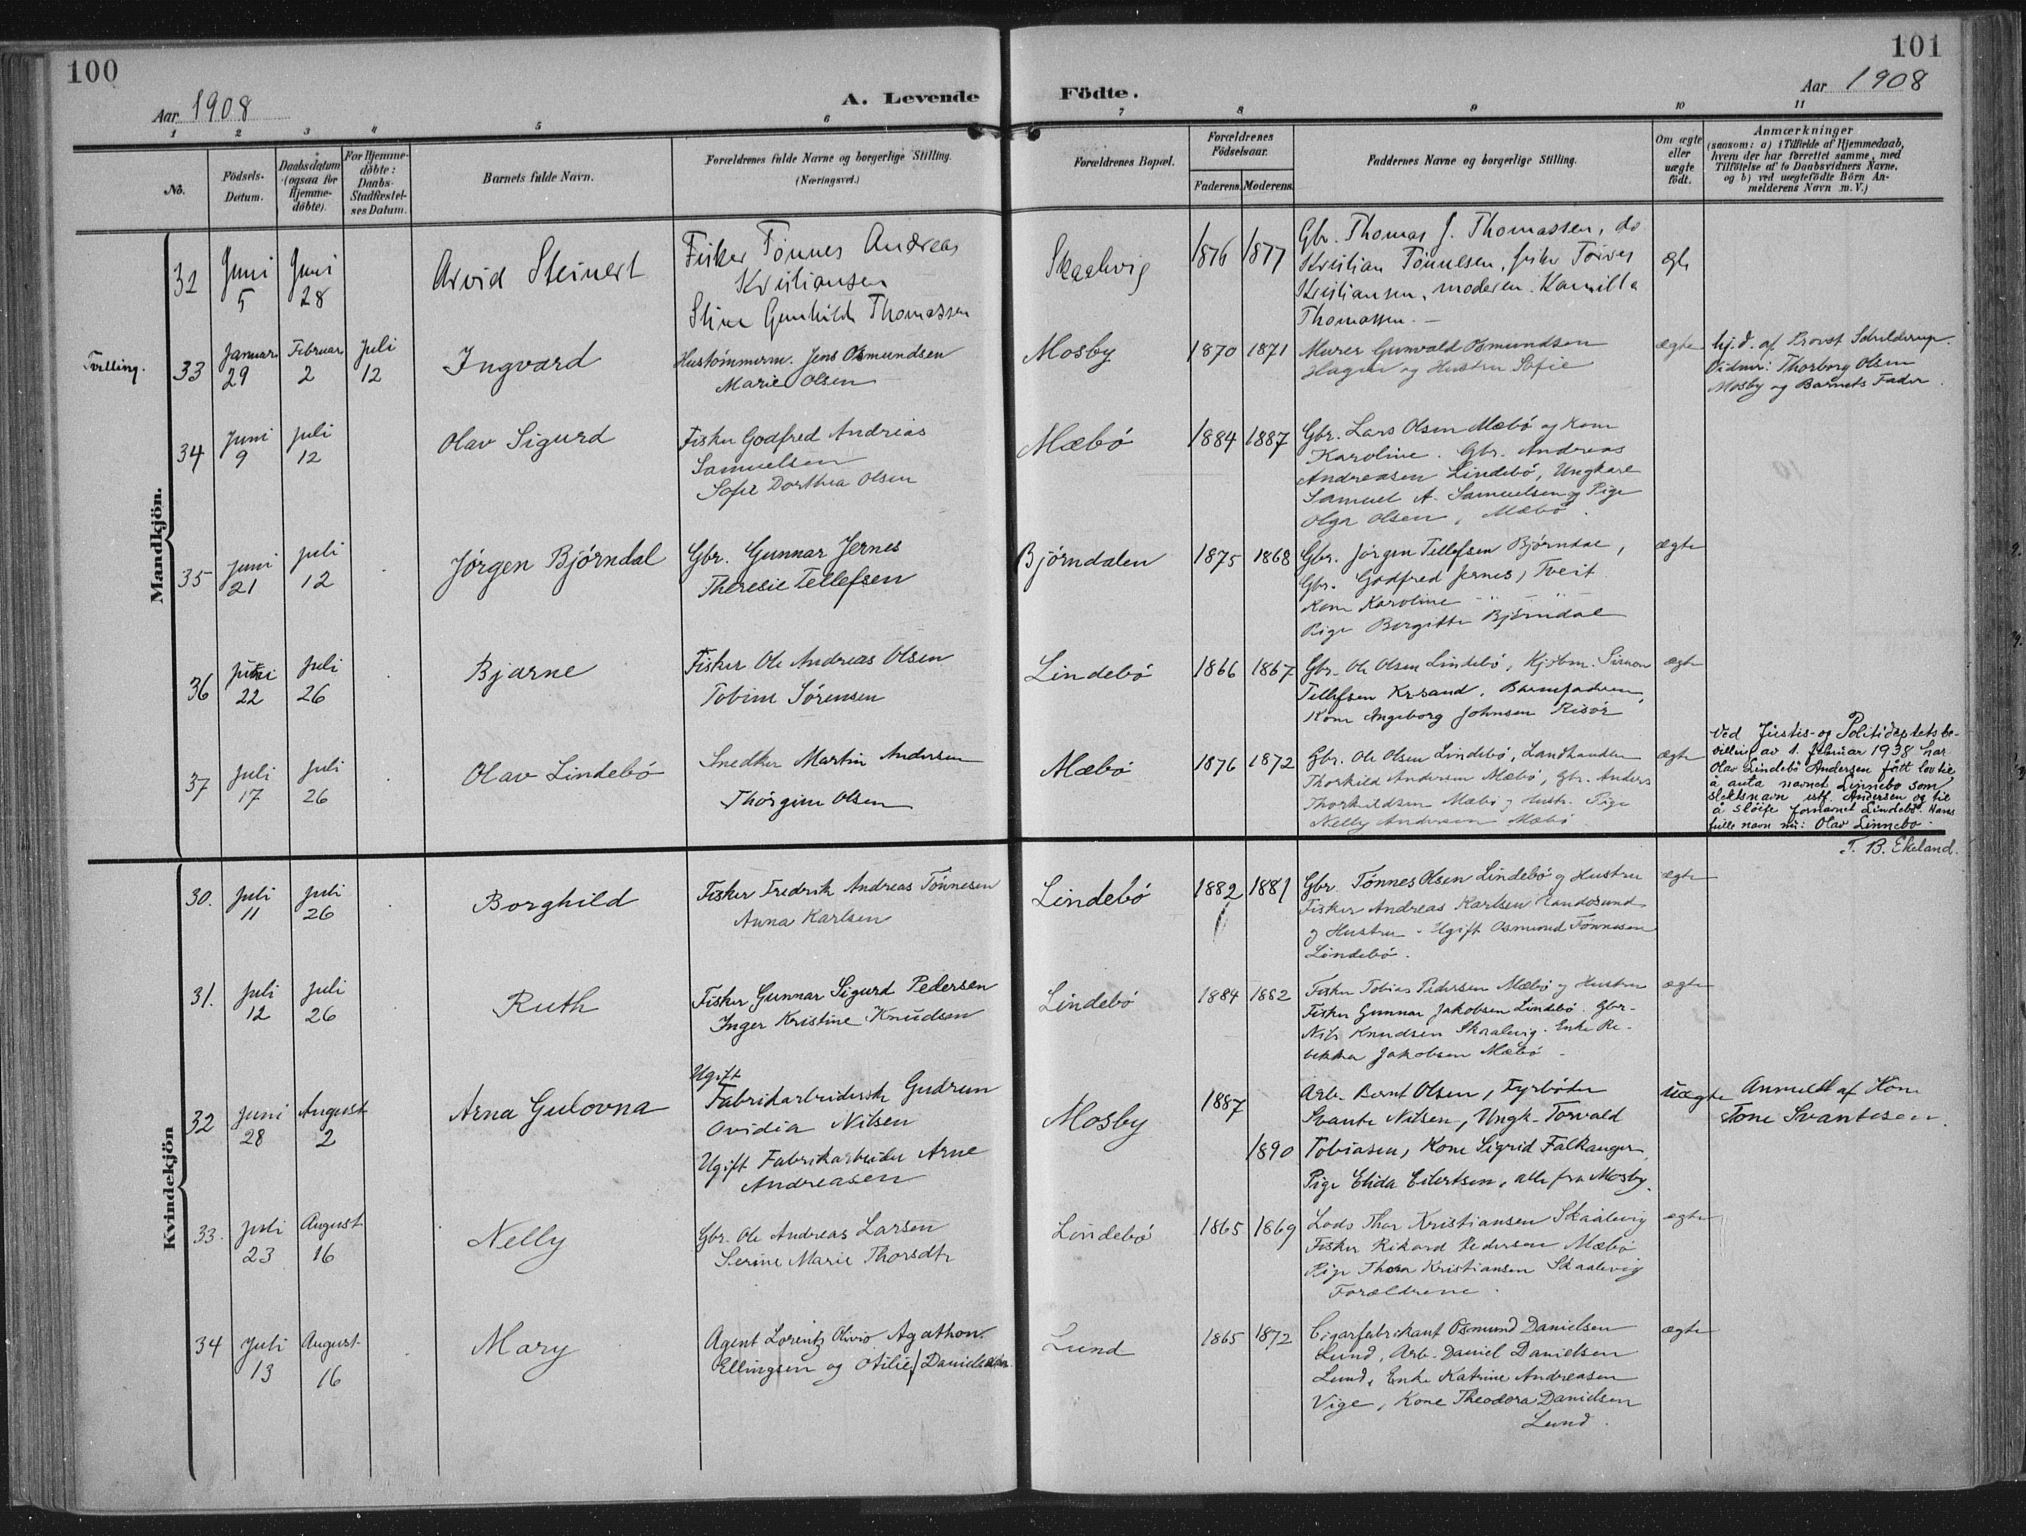 100
101
Aar 1908
A. Levende Födte.
Aar 1908
1 2 3 4 5 6 7 8 9 10 11
No.
Födsels-
Datum.
Daabsdatum
(ogsaa for
Hjemme-
döbte).
For Hjemme-
döbte:
Daabs-
Stadfæstel-
ses Datum.
Barnets fulde Navn.
Forældrenes fulde Navne og borgerlige Stilling.
(Næringsvei.)
Forældrenes Bopæl.
Forældrenes
Födselsaar.
Faderens. Moderens.
Faddernes Navne og borgerlige Stilling.
Om ægte
eller
uægte
födt.
Anmærkninger
(saasom: a) i Tilfælde af Hjemmedaab,
hvem der har forrettet samme, med
Tilföielse af to Daabsvidners Navne,
og b) ved uægtefödte Börn An-
melderens Navn m. V.)
Mandkjön.
32
Juni
5
Juni
28
Arvid Steinert
Fisker Tønnes Andreas
Kristiansen
Stine Gunhilde Thomassen
Skaalevig
1876 1877
Gbr. Thomas J. Thomassen, do
Kristian Tønnesen, fisker
Kristiansen, moderen. Kamilla
Thomassen. —
ægte
Tvilling.
33
Januar
29
Februar
2
Juli
12
Ingvard
Hustømmerm. Jens Osmundsen
Marie Olsen
Mosby
1870 1871
Murer Gunvald Osmundsen
Hagen og Hustru Sofie
ægte
hj.d. af Provst Schilderup.
Vidner: Thorborg Olsen
Mosby og Barnets Fader.
34
Juni
9
Juli
12
Olav Sigurd
Fisker Godfred Andreas
Samuelsen
Sofie Dorthea Olsen
Mæbø
1884 1887
Gbr. Lars Olsen Mæbø og Kone
Karoline. Gbr. Andreas
Andreasen Lindebø, Ungkarl
Samuel A. Samuelsen og Pige
Olga Olsen, Mæbø.
35
Juni
21
Juli
12
Jørgen Bjørndal
Gbr. Gunnar Jernes
Theresie Tellefsen
Bjørndalen
1875 1868
Gbr. Jørgen Tellefsen Bjørndal,
Gbr. Godfred Jernes, Tveit
Kone Karoline " "
Pige Bergitte Bjørndal
ægte
36
Juni
22
Juli
26
Bjarne
Fisker Ole Andreas Olsen
Tobine Sørensen
Lindebø
1866 1867
Gbr. Ole Olsen Lindebø, Kjøbm. Simon
Tellefsen Krsand, Barnefaderen,
Kone Angeborg Johnsen Risør
ægte
37
Juli
17
Juli
26
Olav Lindebø
Snedker Martin Andersen
Thørgine Olsen
Mæbø
1876 1872
Gbr. Ole Olsen Lindebø, Landhandler
Thorkild Andersen Mæbø, Gbr. Anders
Thorkildsen Mæbø og Hustr. Pige
Nelly Andersen Mæbø
ægte
Ved Justis- og Politideptets be-
villing av 1. februar 1938 har
Olav Lindebø Andersen fått lov til
å anta navnet Linnebo som
slektsnavn istf. Andersen og til
å sløife fornavnet Lindebø. Hans
fulle navn nu: Olav Linnebo.
T. B. Ekeland.
Kvindekjön
30.
Juli
11
Juli
26
Borghild
Fisker Fredrik Andreas Tønnesen
Anna Karlsen
Lindebø
1882 1881
Gbr. Tønnes Olsen Lindebø og Hustru
Fisker Andreas Karlsen Randøsund
og Hustru. Ugift Osmund Tønnesen
Lindebø.
ægte
31.
Juli
12
Juli
26
Ruth
Fisker Gunnar Sigurd Pedersen
Inger Kristine Knudsen
Lindebø
1884 1882
Fisker Tobias Pedersen Mæbø og Hustru
Fisker Gunnar Jakobsen Lindebø. Gbr.
Nils Knudsen Skaalevig. Enke Re-
bekka Jakobsen Mæbø.
ægte
32
Juni
28
August
2
Arna Gulovna
Ugift
Fabrikarbeiderske Gudrun
Ovidia Nilsen
Ugift Fabrikarbeider Arne
Andreasen
Mosby
1887
1890
Arb. Bernt Olsen, Fyrbøder
Svante Nilsen, Ungk. Torvald
Tobiasen, Kone Sigrid Falkanger,
Pige Elida Eilertsen, alle fra Mosby.
uægte
Anmeldt af Kone
Tone Svantesen.
33.
Juli
23
August
16
Nelly
Gbr. Ole Andreas Larsen
Serine Marie Thorsdtr
Lindebø
1865 1869
Lods Thor Kristiansen Skaalevig
Fisker Rikard Pedersen Mæbø
Pige Thora Kristiansen Skaalevig
Forældrene.
ægte
34
Juli
13
August
16
Mary
Agent Lorentz Olivio Agathon
Ellingsen og Otilie Danielsen
Lund
1865 1872
Cigarfabrikant Osmund Danielsen
Lund, Arb. Daniel Danielsen
Lund, Enke Katrine Andreasen
Vige, Kone Theodora Danielsen
Lund.
ægte